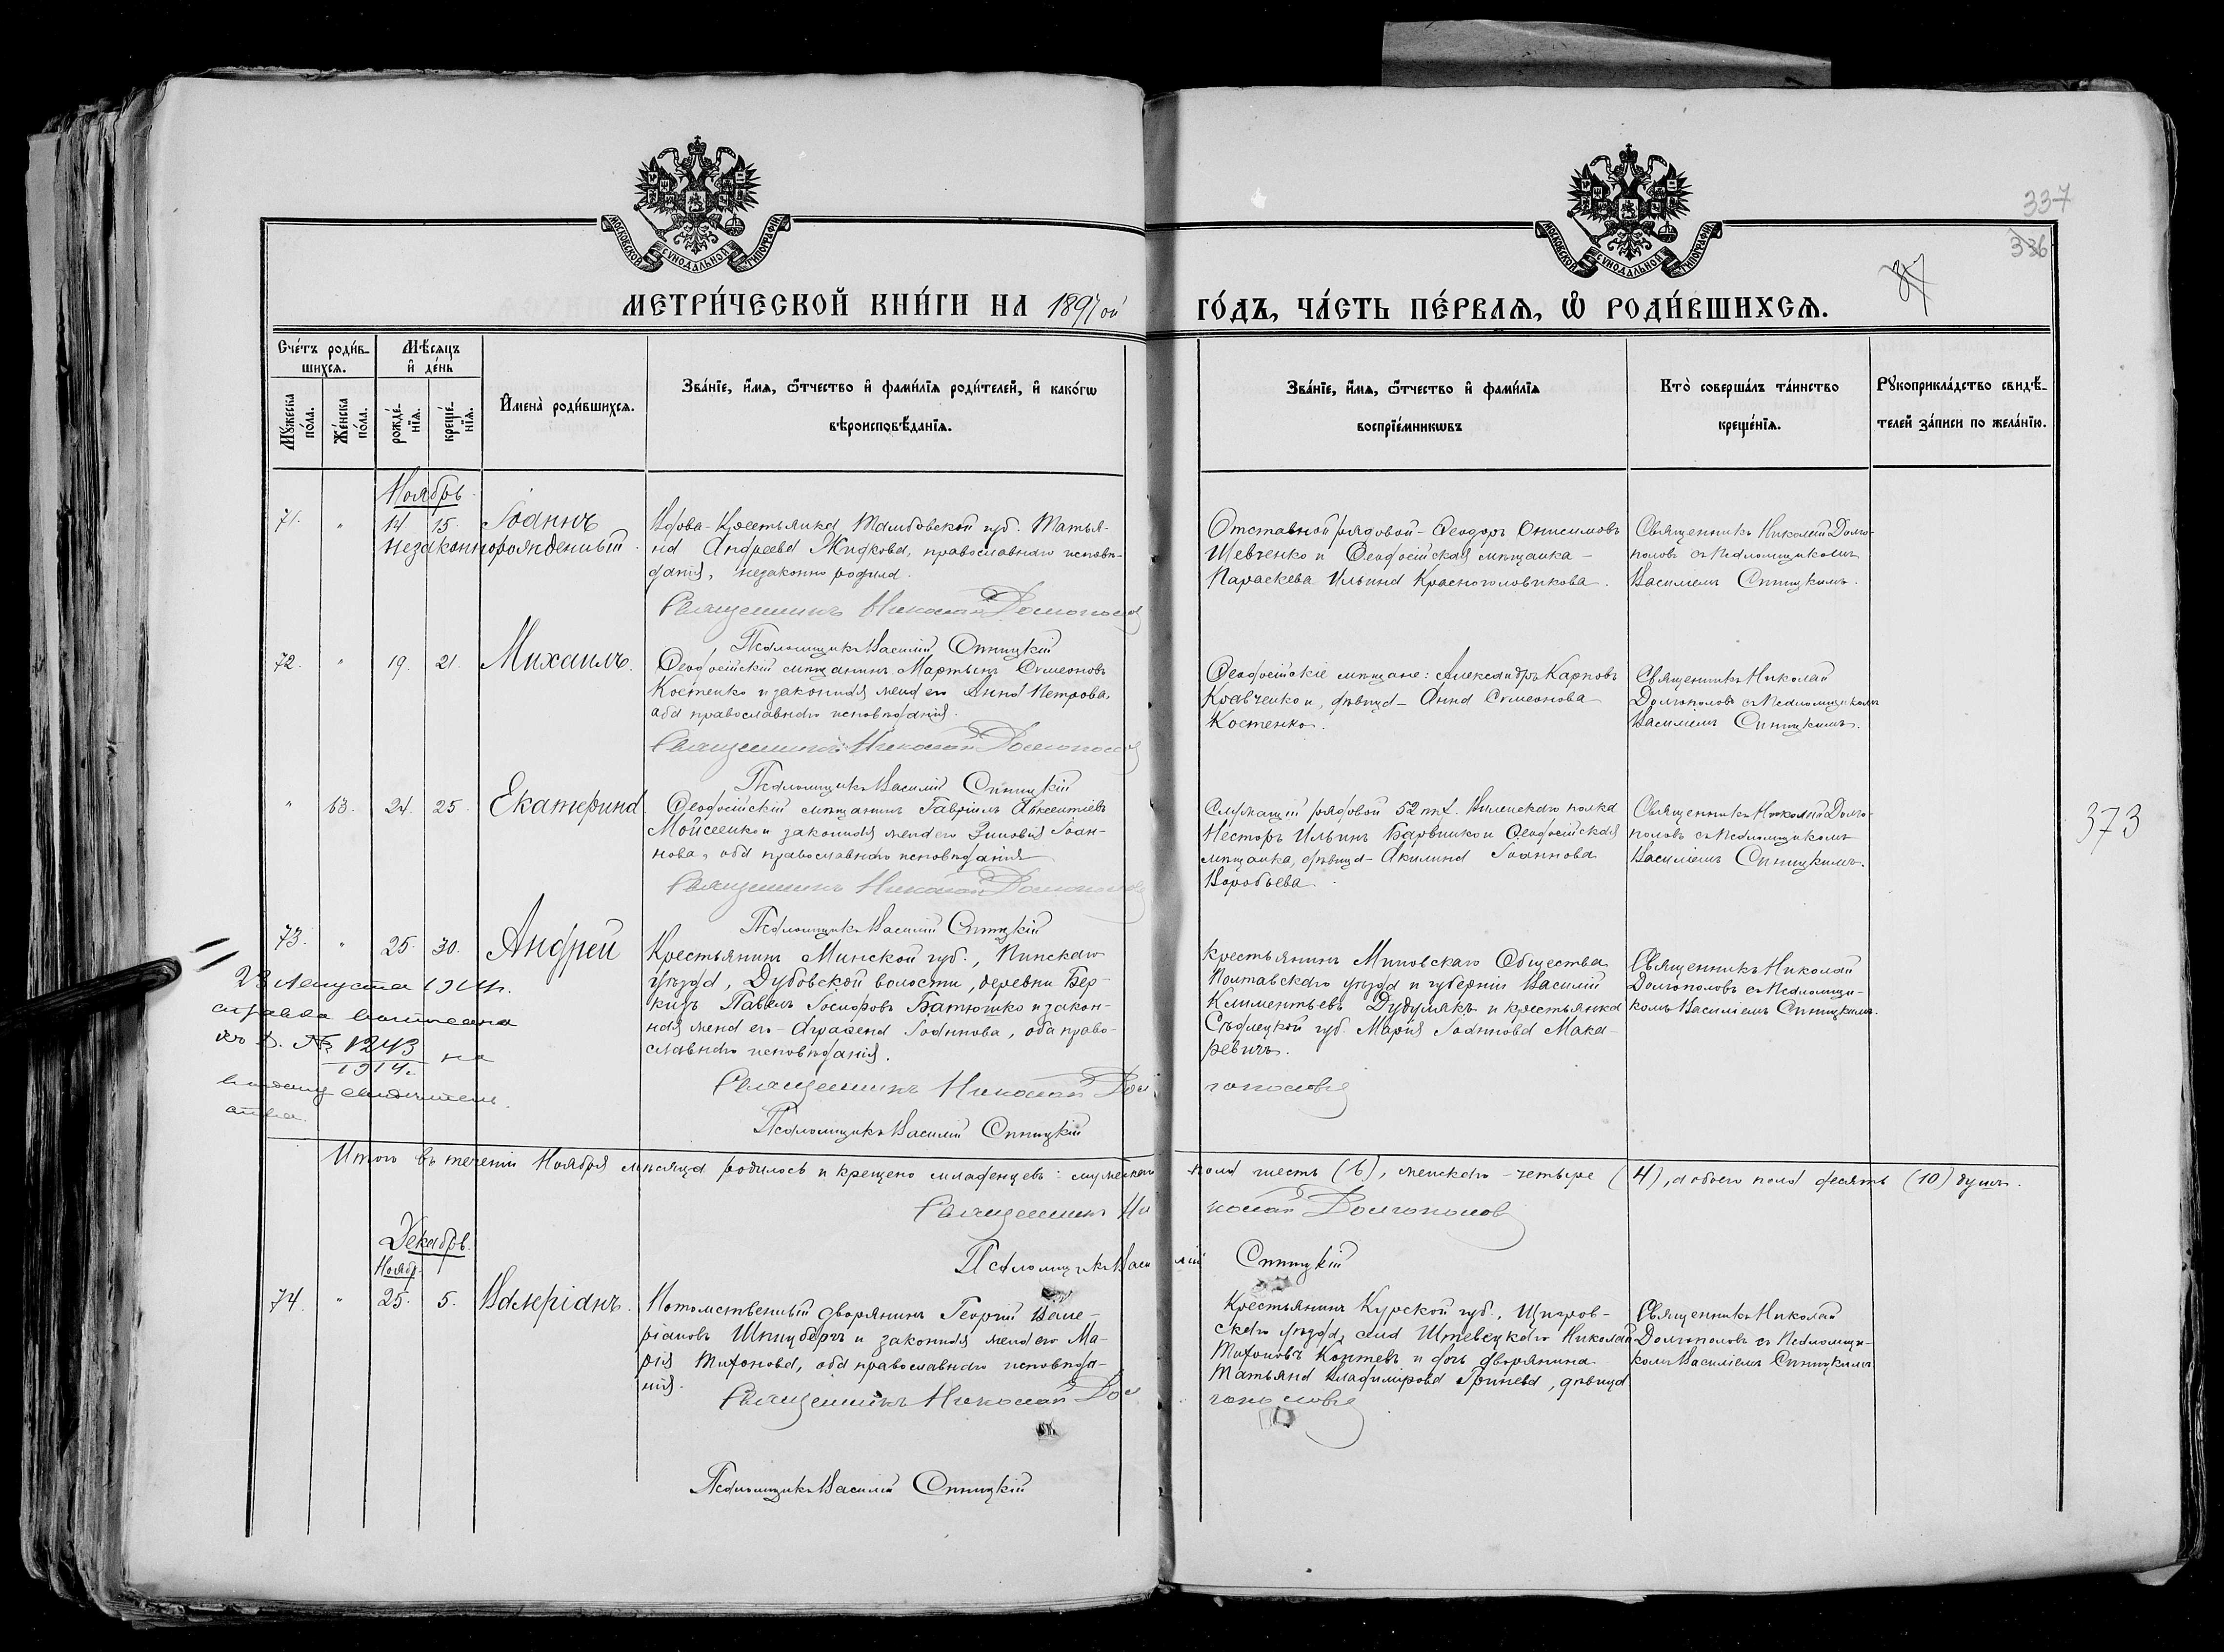 МОСКОВСКОЙ СѴНОДАЛЬНОЙ ТИПОГРАФІИ
МОСКОВСКОЙ СѴНОДАЛЬНОЙ ТИПОГРАФІИ
337
336
37
МЕТРИ́ЧЕСКОЙ КНИ́ГИ НА 1897 ой
ГО́ДЪ, ЧА́СТЬ ПЕ́РВАЯ, Ѿ РОДИ́ВШИХСЯ.
Сче́тъ роди́в-
шихся.
Мѣ́сяцъ
и҆ де́нь
Му́жеска
по́ла.
Же́нска
по́ла.
рожде́-
нїя.
креще́-
нїя.
И҆мена̀ роди́вшихся.
Зва́нїе, и҆́мя, ѻ҆́тчество и҆ фами́лїя роди́телей, и҆ како́гѡ
вѣроисповѣ́данїя.
Зва́нїе, и҆́мя, ѻ҆́тчество и҆ фами́лїя
воспрїе́мникѡвъ
Кто̀ соверша́лъ та́инство
креще́нїя.
Рꙋкоприкла́дство свидѣ́-
телей за́писи по жела́нїю.
Ноябрь
71. " 14. 15. Іоаннъ
незаконнорожденный.
Вдова-Крестьянка Тамбовской губ. Татья-
на Андреева Жидкова, православнаго исповѣ-
данія, незаконно родила.
Священникъ Николай Долгополовъ
Псаломщикъ Василій Спицкій
Отставной рядовой - Ѳеодоръ Онисимовъ
Шевченко и Ѳеодосійская мѣщанка -
Параскева Ильина Красноголовикова.
Священникъ Николай Долго-
половъ съ Псаломщикомъ
Василіемъ Спицкимъ.
72. " 19. 21. Михаилъ.
Ѳеодосійскій мѣщанинъ Мартынъ Симеоновъ
Костенко и законная жена его Анна Петрова,
оба православнаго исповѣданія.
Священникъ Николай Долгополовъ
Псаломщикъ Василій Спицкій
Ѳеодосійскіе мѣщане: Александръ Карповъ
Кравченко и, дѣвица - Анна Симеонова
Костенко.
Священникъ Николай
Долгополовъ съ Псаломщикомъ
Василіемъ Спицкимъ.
" 63. 24. 25. Екатерина.
Ѳеодосійскій мѣщанинъ Гавріилъ Авксентіевъ
Мойсеенко и законная жена его Зиновія Іоан-
нова, оба православнаго исповѣданія
Священникъ Николай Долгополовъ
Псаломщикъ Василій Спицкій
Служащій рядовой 52го Виленскаго полка
Несторъ Ильинъ Барвинко и Ѳеодосійская
мѣщанка, дѣвица - Акилина Іоаннова
Воробьева.
Священникъ Николай Долго-
половъ съ Псаломщикомъ
Василіемъ Спицкимъ.
373
73. " 25. 30. Андрей
Крестьянинъ Минской губ., Пинскаго
уѣзда, Дубовской волости, деревни Бер-
Павелъ Іосифовъ Батюшко и закон-
ная жена его - Агафена Іоаннова, оба право-
славнаго исповѣданія.
Священникъ Николай Долгополовъ
Псаломщикъ Василій Спицкій
Крестьянинъ Миновскаго Общества
Полтавскаго уѣзда и губерніи Василій
Климентьевъ Дудулякъ и крестьянка
Сѣдлецкой губ. Марія Іоаннова Мака-
ревичъ.
Священникъ Николай
Долгополовъ съ Псаломщи-
комъ Василіемъ Спицкимъ.
23 Августа 1914 г.
справка
къ д. № 1243
1914 г. на
выдачу свидѣтель-
ства.
Итого въ теченіи Ноября мѣсяца родилось и крещено младенцевъ: мужескаго пола шесть (6), женскаго - четыре (4), а обоего пола десять (10) душъ.
Священникъ Николай Долгополовъ
Псаломщикъ Василій Спицкій
Декабрь.
Ноябр.
74. " 25. 5. Валеріанъ.
Потомственный дворянинъ Георгій Вале-
ріановъ Шпицбергъ и законная жена его Ма-
рія Тихонова, оба православнаго исповѣда-
нія.
Священникъ Николай Долгополовъ
Псаломщикъ Василій Спицкій
Крестьянинъ Курской губ., Щигров-
скаго уѣзда, села Николай
Тихоновъ Коптевъ и дочь дворянина
Татьяна Владимірова Гринева, дѣвица
Священникъ Николай
Долгополовъ съ Псаломщи-
комъ Василіемъ Спицкимъ